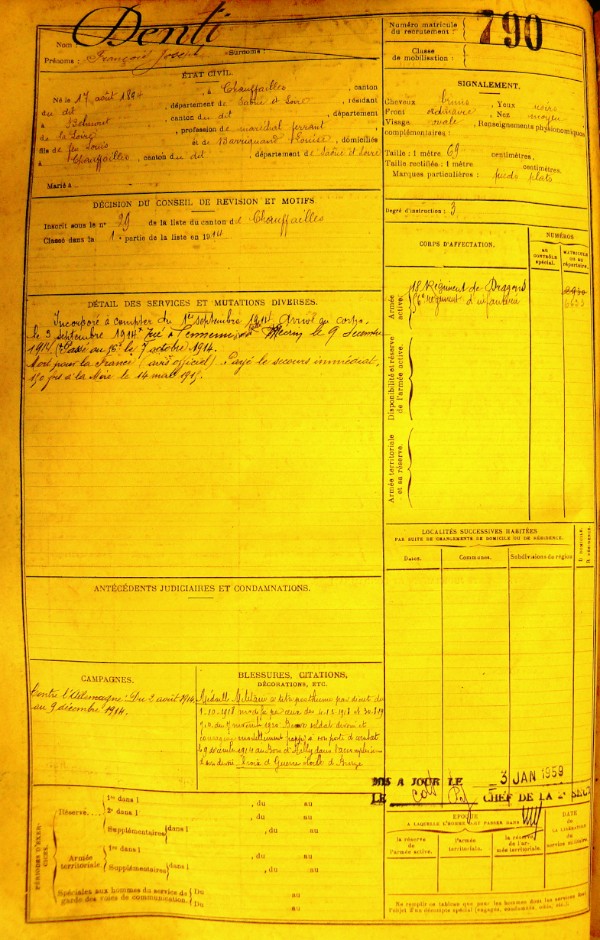 Nom Denti
Prénoms : François Joseph Surnoms :
Numéro matricule du recrutement : 790
Classe de mobilisation :
ÉTAT CIVIL.
Né le 17 août 1894, à Chauffailles, canton
du dit, département de Saône et Loire, résidant
à Belmont, canton du dit, département
de la Loire, profession de maréchal ferrant
fils de feu Louis et de Louise, domiciliés
à Chauffailles, canton du dit, département de Saône et Loire
Marié à
SIGNALEMENT.
Cheveux bruns, Yeux noirs
Front, Nez moyen
Visage ovale, Renseignements physionomiques
complémentaires :
Taille : 1 mètre 69 centimètres,
Taille rectifiée : 1 mètre centimètres.
Marques particulières : pieds plats
Degré d'instruction : 3
DÉCISION DU CONSEIL DE RÉVISION ET MOTIFS.
Inscrit sous le n° 29 de la liste du canton de Chauffailles
Classé dans la 1e partie de la liste en 1914
CORPS D'AFFECTATION.
NUMÉROS
AU CONTRÔLE SPÉCIAL.
MATRICULE OU AU RÉPERTOIRE.
Armée active.
18e Régiment de Dragons
Régiment d'infanterie
Disponibilité et réserve de l'armée active.
Armée territoriale et sa réserve.
DÉTAIL DES SERVICES ET MUTATIONS DIVERSES.
Incorporé à compter du 1er septembre 1914 Arrivé au corps
le 3 septembre 1914 Tué à l'ennemi le 9 décembre
1914 Passé au le 7 octobre 1914.
Mort pour la France (avis officiel) Payé le secours immédiat,
150 frs à la Mère le 14 mars 1915.
LOCALITÉS SUCCESSIVES HABITÉES
PAR SUITE DE CHANGEMENTS DE DOMICILE OU DE RÉSIDENCE.
Dates.
Communes.
Subdivisions de région
D. DOMICILE.
R. RÉSIDENCE.
ANTÉCÉDENTS JUDICIAIRES ET CONDAMNATIONS.
CAMPAGNES.
Contre l'Allemagne : Du 2 août 1914
au 9 décembre 1914.
BLESSURES, CITATIONS,
DÉCORATIONS, ETC.
Médaille Militaire à titre posthume par décret du
1.10.1918 modifié par ceux des
J.O. du 7 novembre 1920 Brave soldat dévoué et
courageux mortellement frappé à son poste de combat
le 9 décembre 1914 au Bois d'Ailly dans l'accomplissement
de son devoir. Croix de Guerre étoile de Bronze
MIS A JOUR LE 3 JAN 1959
LE CHEF DE LA 2e SECT
PÉRIODES D'EXERCICES.
Réserve.
1re dans l , du au
2e dans l , du au
Supplémentaires dans l , du au
, du au
Armée territoriale.
1re dans l , du au
Supplémentaires dans l , du au
, du au
Spéciales aux hommes du service de
garde des voies de communication.
Du au
Du au
ÉPOQUE
A LAQUELLE L'HOMME DOIT PASSER DANS
la réserve de l'armée active.
l'armée territoriale.
la réserve de l'armée territoriale.
DATE DE LA LIBÉRATION du service militaire.
Ne remplir ce tableau que pour les hommes dont les services font
l'objet d'un décompte spécial (engagés, condamnés, omis, etc.).